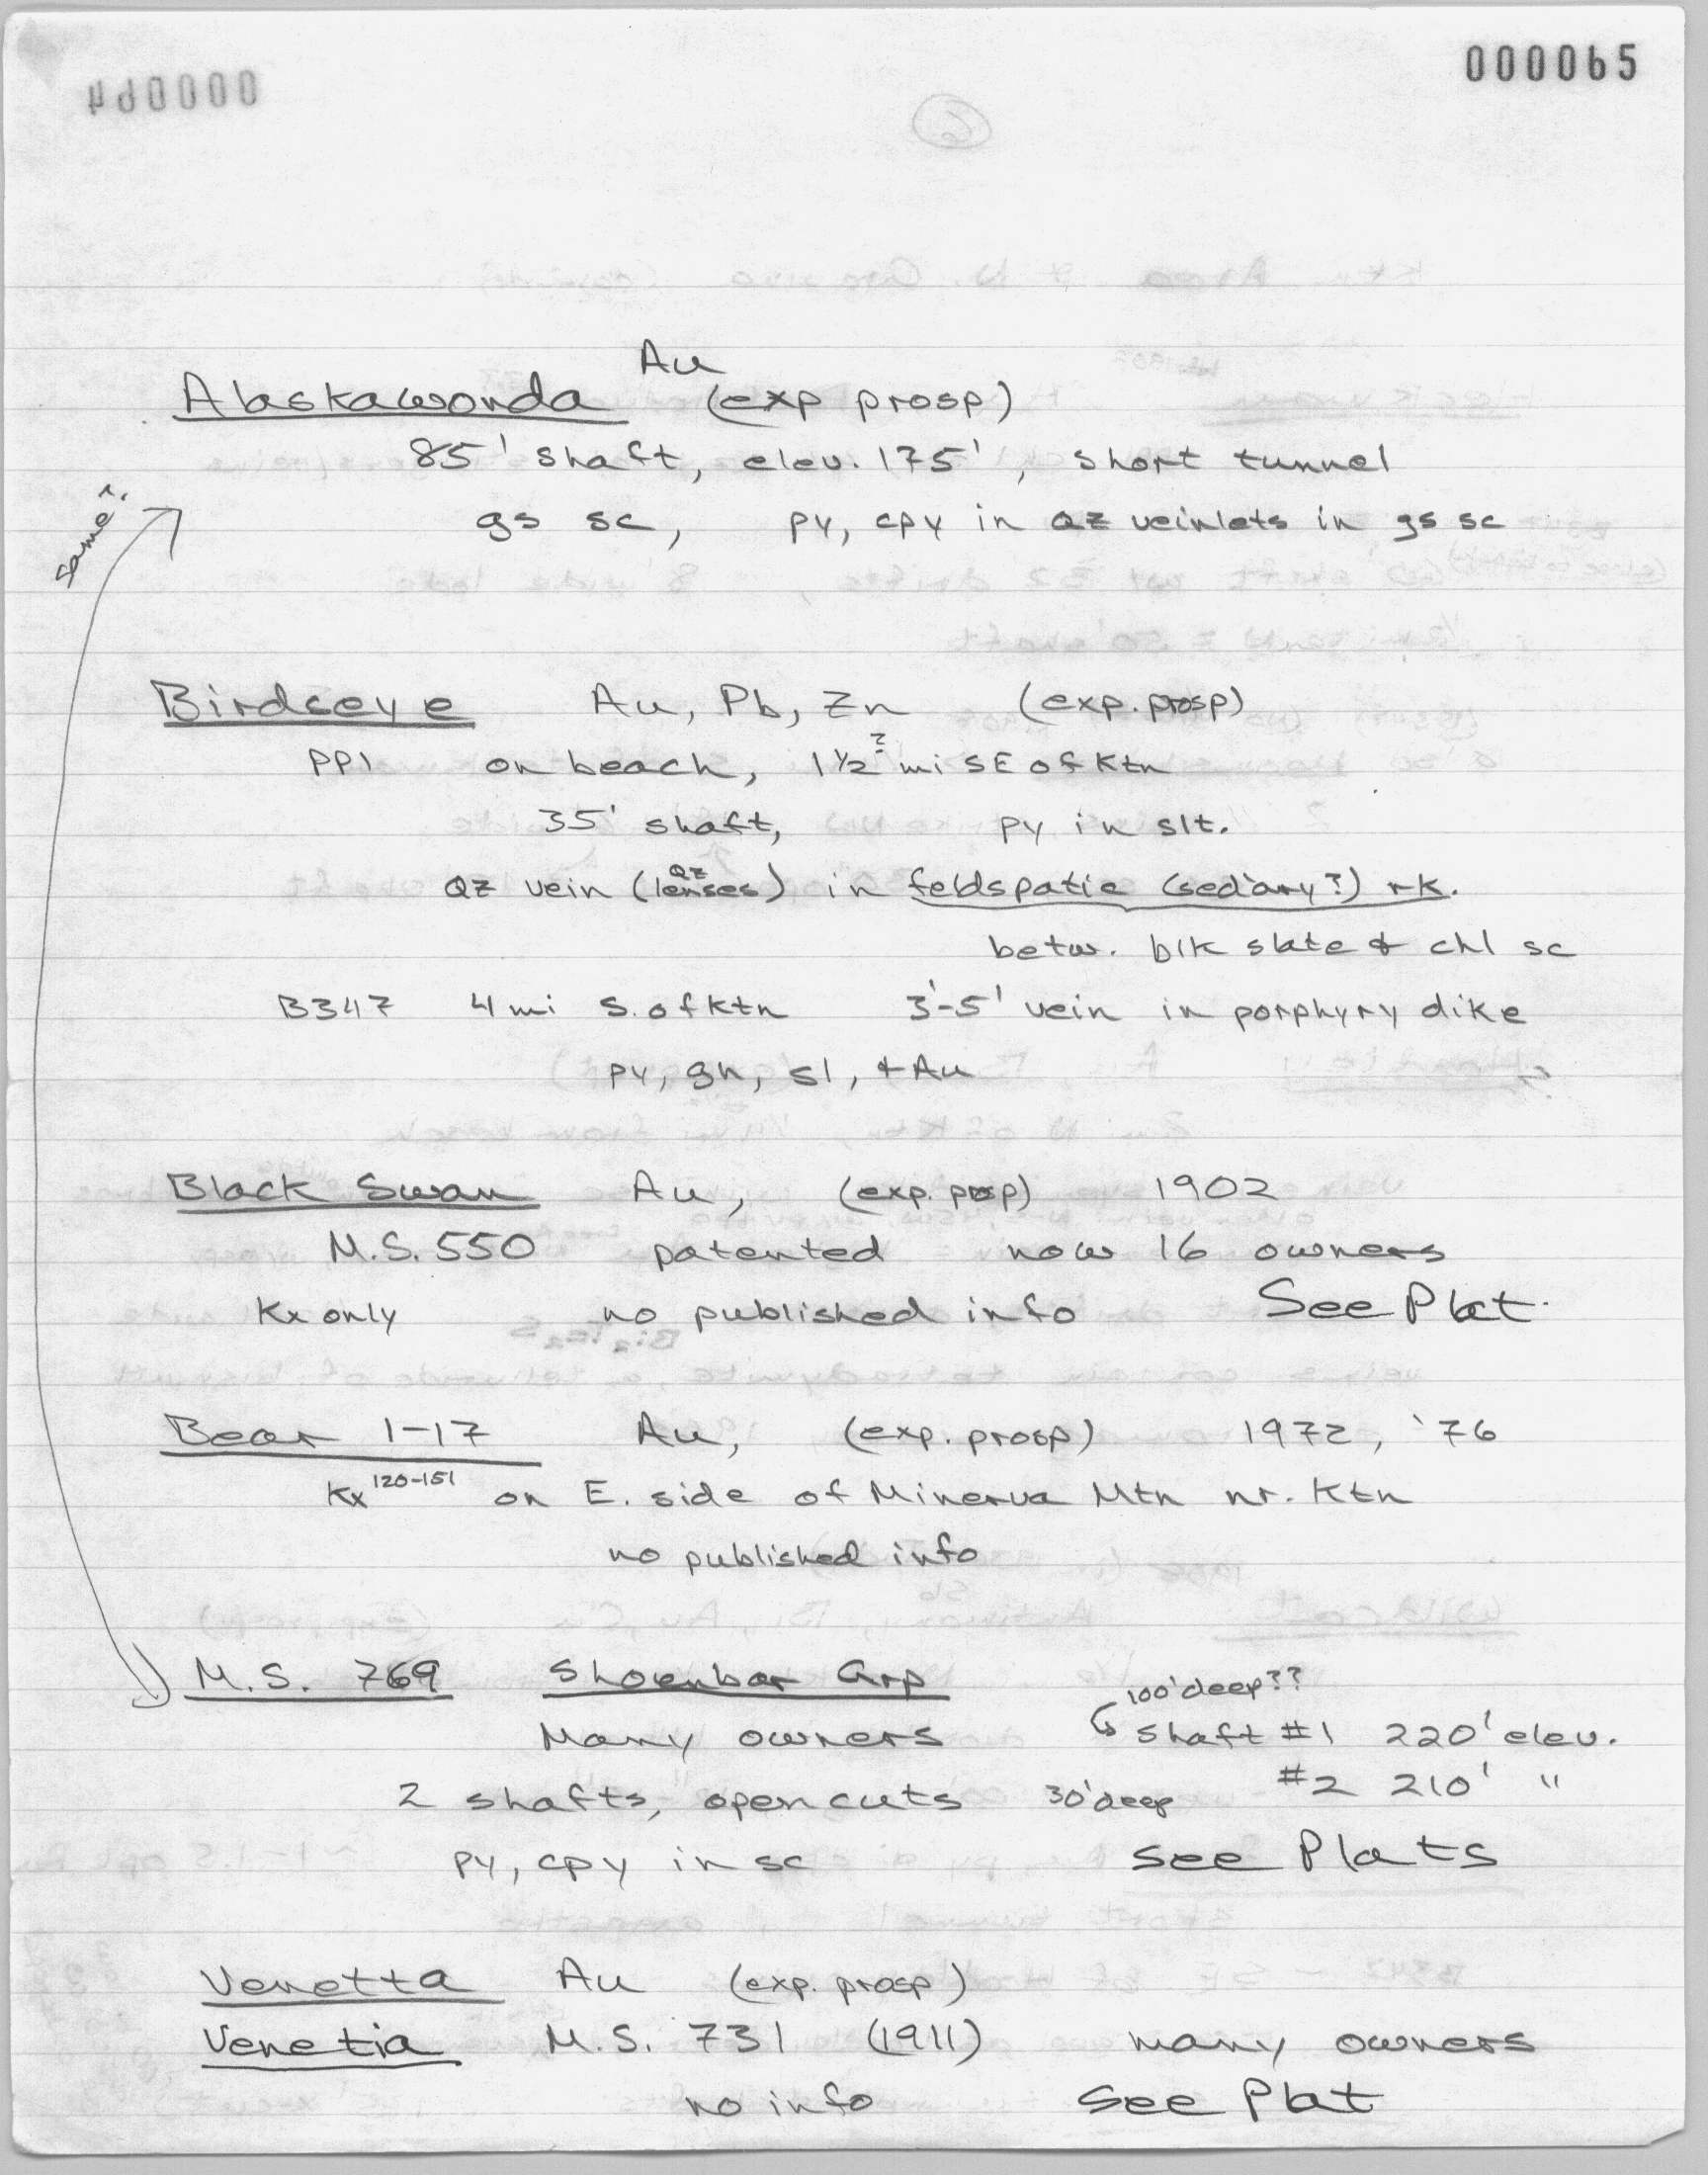 000065
6
Au
Alaskawonda (exp prosp)
85' shaft, elev. 175', short tunnel
same?
gs sc, py, cpy in QZ veinlets in gs sc
Birdseye Au, Pb, Zn (exp. prosp)
PP1 on beach, 1 1/2? mi SE of Ktn
35' shaft, py in slt.
QZ vein (QZ lenses) in feldspatic (sed'ary?) rk.
betw. blk slate & chl sc
B347 4 mi S. of Ktn 3'-5' vein in porphyry dike
py, gn, sl, + Au
Black Swan Au, (exp. prosp) 1902
M.S. 550 patented now 16 owners
Kx only no published info See Plat.
Bear 1-17 Au, (exp. prosp) 1972, '76
Kx 120-151 on E. side of Minerva Mtn nr. Ktn
no published info
M.S. 769 Shoenbar Grp
100' deep??
Many owners Shaft #1 220' elev.
2 shafts, open cuts 30' deep #2 210' "
py, cpy in sc see Plats
Venetta Au (exp. prosp)
Venetia M.S. 731 (1911) many owners
no info See Plat